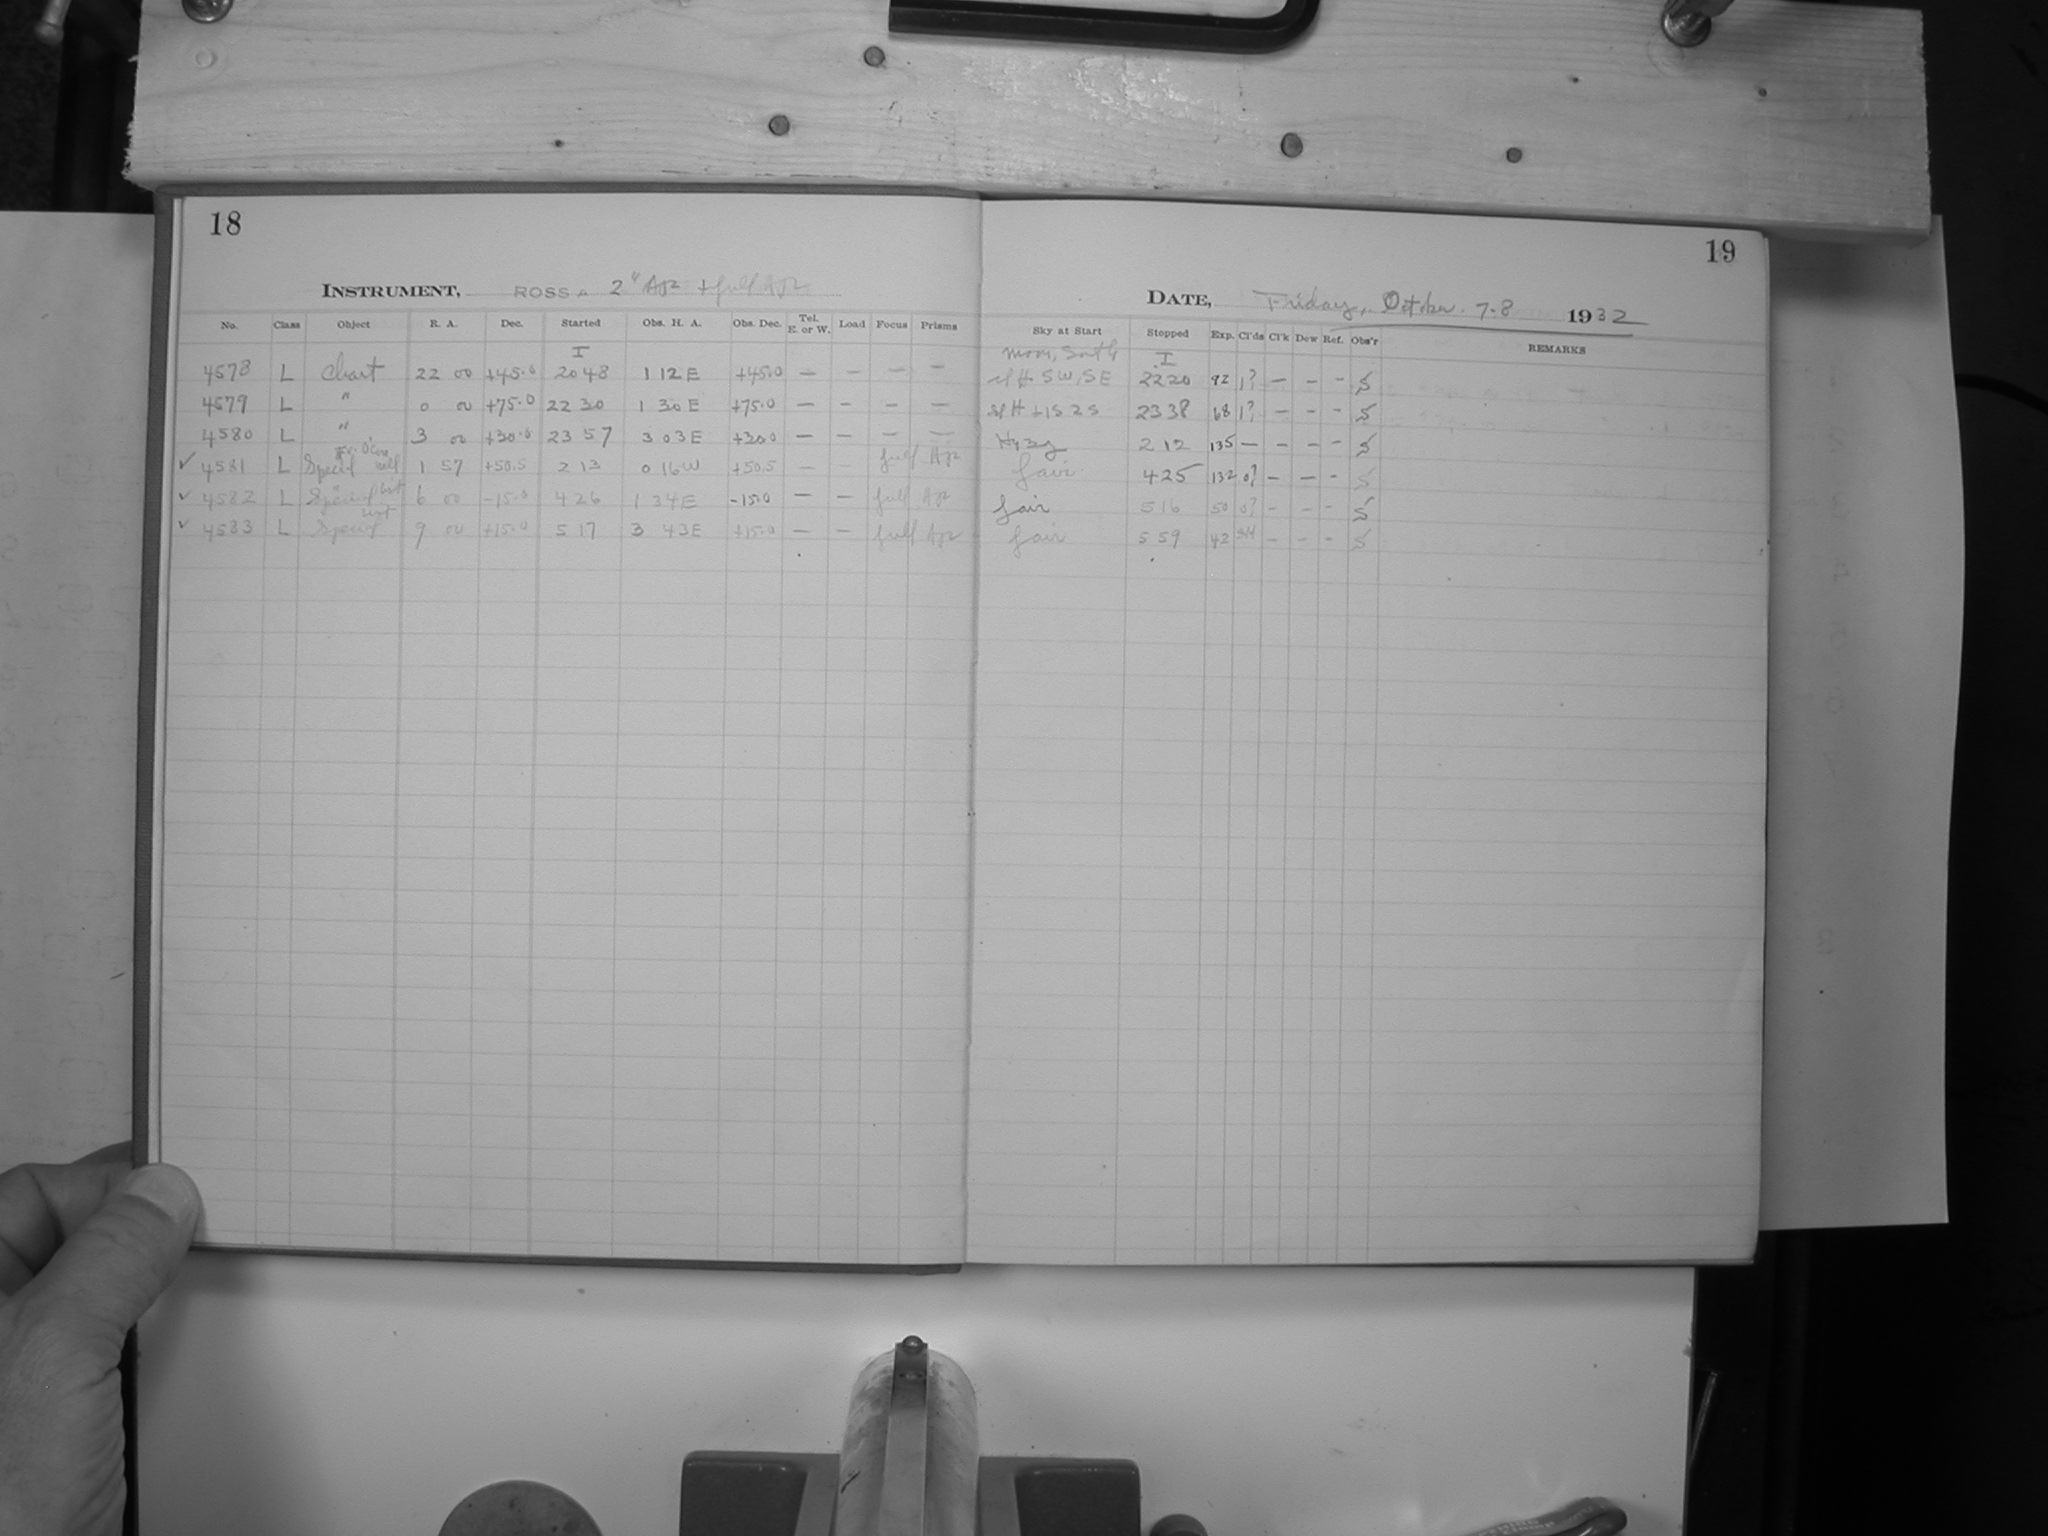 18
INSTRUMENT, ROSS 2" Apr + full Apr
No. Class Object R. A. Dec. Started Obs. H. A. Obs. Dec. Tel. E. or W. Load Focus Prisms
I
4578 L Chart 22 00 +45.0 20 48 1 12 E +45.0 — — — —
4579 L " 0 00 +75.0 22 30 1 30 E +75.0 — — — —
4580 L " 3 00 +30.0 23 57 3 03 E +30.0 — — — —
✓ 4581 L Special 1 57 +50.5 2 13 0 16 W +50.5 — — full Apr
✓ 4582 L Special 6 00 -15.0 4 26 1 34 E -15.0 — — full Apr
✓ 4583 L Special 9 00 +15.0 5 17 3 43 E +15.0 — — full Apr
19
DATE, Friday, October 7-8 1932
Sky at Start Stopped Exp. Cl'ds Cl'k Dew Ref. Obs'r REMARKS
Moon, South I
SW, SE 22 20 92 1? — — - S
23 38 68 1? - - - S
Hazy 2 12 135 — - - - S
fair 4 25 132 0? - - - S
fair 5 16 50 0? - - - S
fair 5 59 42 - - - S